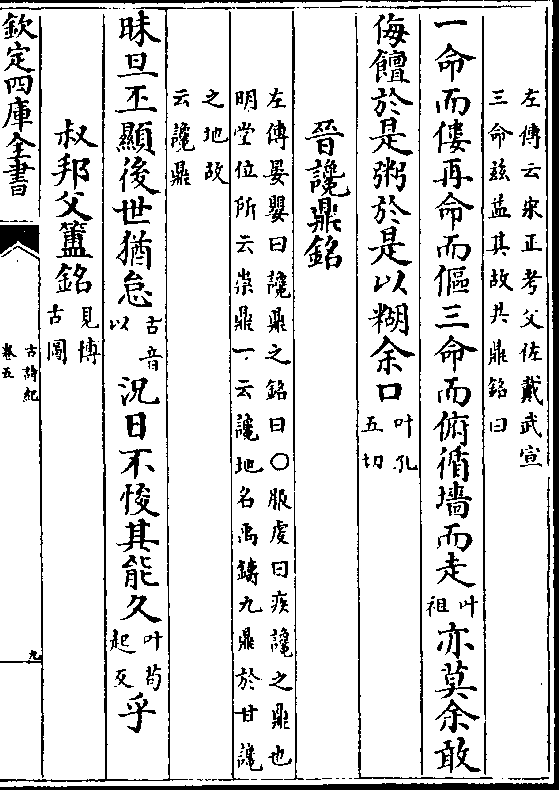 左傳云宋正考父佐戴武宣
三命兹益共故其鼎銘曰
一命而僂再命而傴三命而俯循墻而走叶祖亦莫余敢
侮饘於是粥於是以糊余口叶孔五切
晉讒鼎銘
左傳晏嬰曰讒鼎之銘曰○服虔曰疾讒之鼎也
明堂位所云崇鼎一云讒地名禹鑄九鼎於甘讒
之地故
云讒鼎
昧旦丕顯後世猶怠古音以況日不悛其能久叶苟起反乎
叔邦父簠銘見博古圖
欽定四庫全書
古詩紀
卷五
九